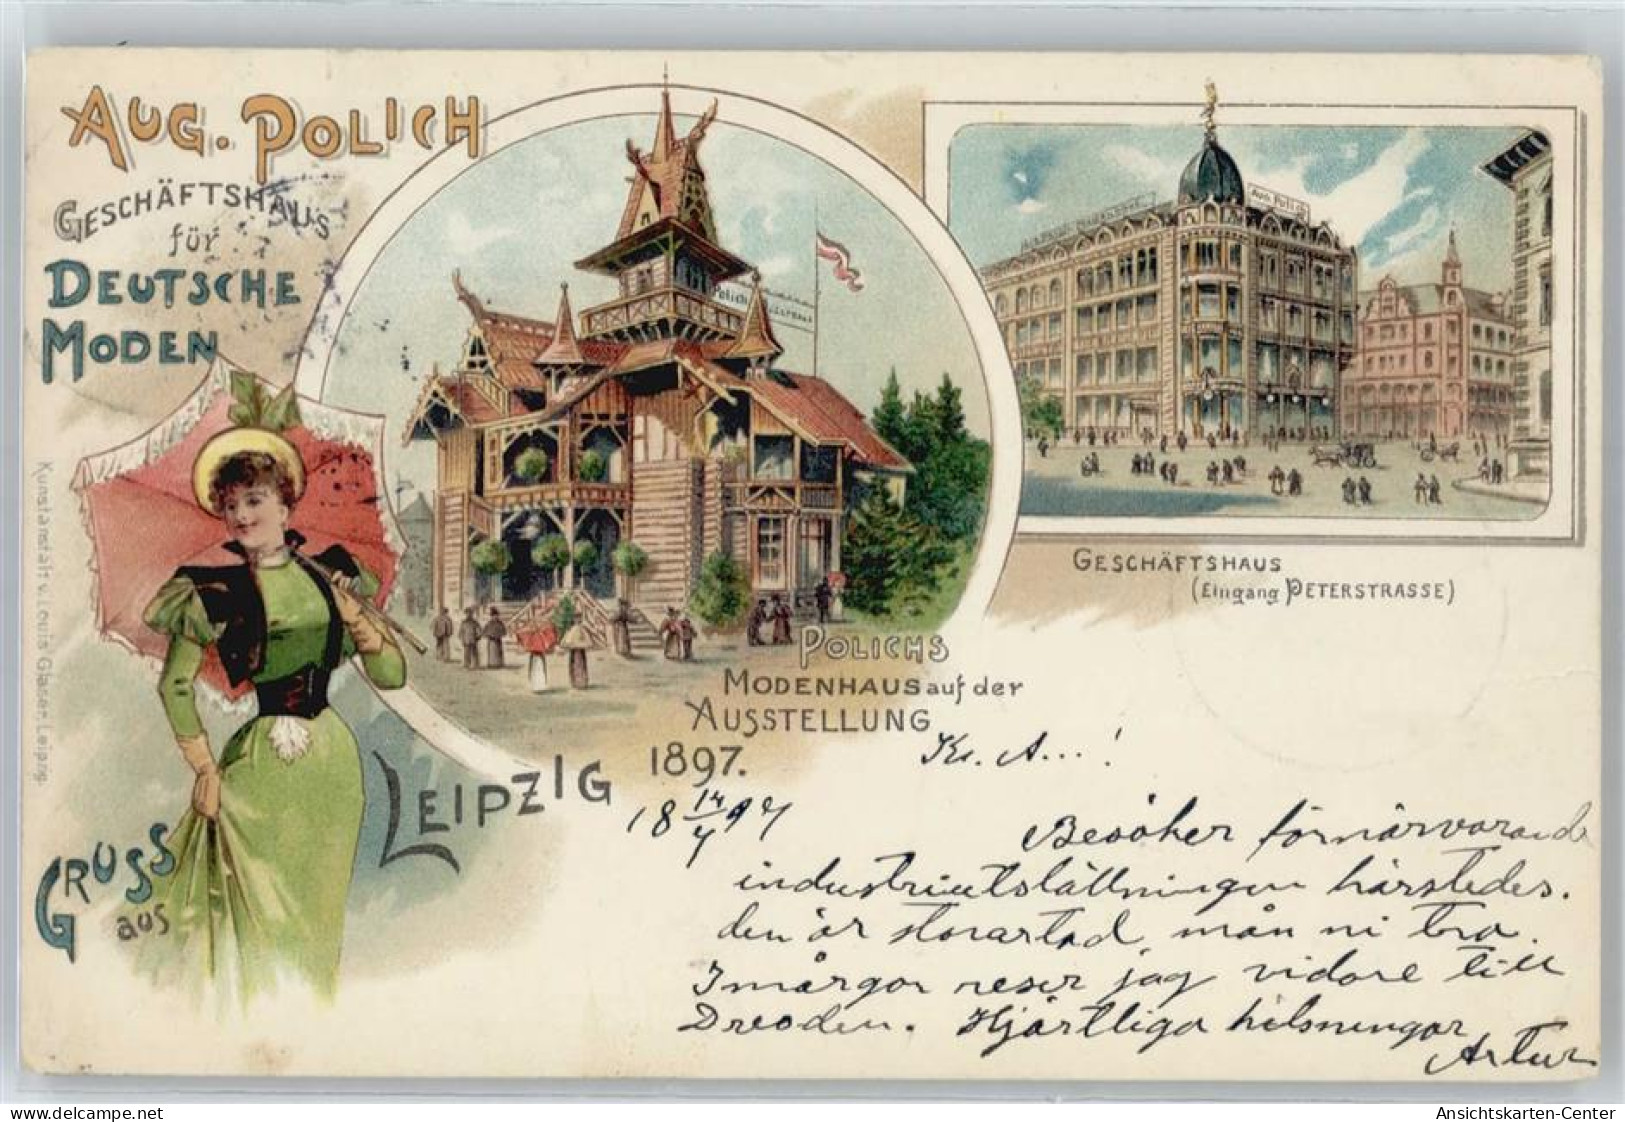 AUG. POLICH
GESCHÄFTSHAUS
für
DEUTSCHE
MODEN
Polich
Aug. Polich
GESCHÄFTSHAUS
(Eingang PETERSTRASSE)
POLICHS
MODENHAUS auf der
AUSSTELLUNG
1897.
GRUSS
aus
LEIPZIG
Kunstanstalt v. Louis Glaser, Leipzig.
18 14/7 97
Kr. A...!
Besöker förnärvarande
industriutställningen härstedes.
den är storartad, mån ni tro.
I mårgon reser jag vidare till
Dresden. Hjärtliga hälsningar
Artur
Ansichtskarten-Center